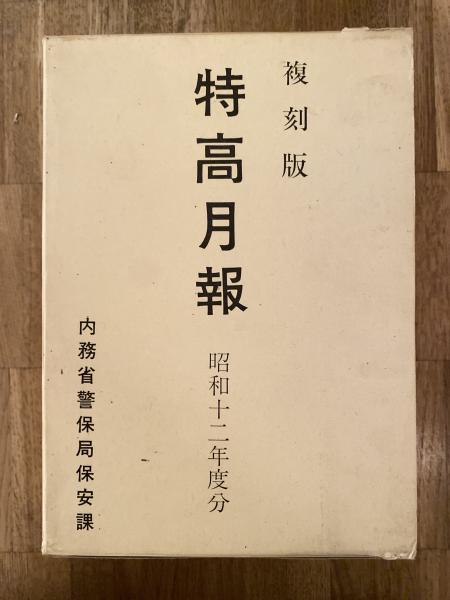 複刻版
特高月報
昭和十二年度分
内務省警保局保安課